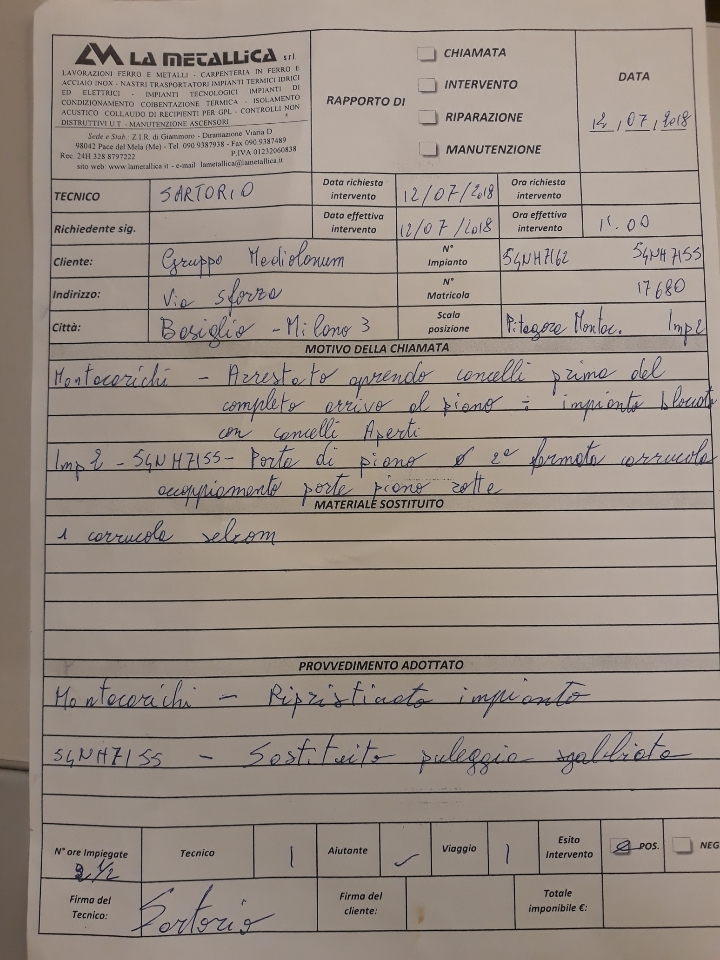 LA METALLICA s.r.l.
LAVORAZIONI FERRO E METALLI - CARPENTERIA IN FERRO E
ACCIAIO INOX - NASTRI TRASPORTATORI IMPIANTI TERMICI IDRICI
ED ELETTRICI - IMPIANTI TECNOLOGICI IMPIANTI DI
CONDIZIONAMENTO COIBENTAZIONE TERMICA - ISOLAMENTO
ACUSTICO COLLAUDO DI RECIPIENTI PER GPL - CONTROLLI NON
DISTRUTTIVI U.T - MANUTENZIONE ASCENSORI
Sede e Stab.: Z.I.R. di Giammoro - Diramazione Viaria D
98042 Pace del Mela (Me) - Tel. 090.9387938 - Fax 090.9387489
Rec. 24H 328 8797222 P.IVA 01232060838
sito web: www.lametallica.it - e-mail: lametallica@lametallica.it
RAPPORTO DI
CHIAMATA
INTERVENTO
RIPARAZIONE
MANUTENZIONE
DATA
12/07/2018
TECNICO SARTORIO Data richiesta intervento 12/07/2018 Ora richiesta intervento
Richiedente sig. Data effettiva intervento 12/07/2018 Ora effettiva intervento 15.00
Cliente: Gruppo Mediolanum N° Impianto 54NH7162 54NH7155
Indirizzo: Via Sforza N° Matricola 17680
Città: Basiglio - Milano 3 Scala posizione Pitagora Montac. Imp 2
MOTIVO DELLA CHIAMATA
Montacarichi - Arrestato aprendo cancelli prima del
completo arrivo al piano ÷ impianto bloccato
con cancelli Aperti
Imp 2 - 54NH7155 - Porta di piano 2° fermata carrucola
accoppiamento porte piano rotte
MATERIALE SOSTITUITO
1 carrucola selcom
PROVVEDIMENTO ADOTTATO
Montacarichi - Ripristinato impianto
54NH7155 - Sostituito puleggia sgabbiata
N° ore Impiegate 2 1/2 Tecnico 1 Aiutante Viaggio 1 Esito Intervento POS. NEG
Firma del Tecnico: Sartorio Firma del cliente: Totale imponibile €: